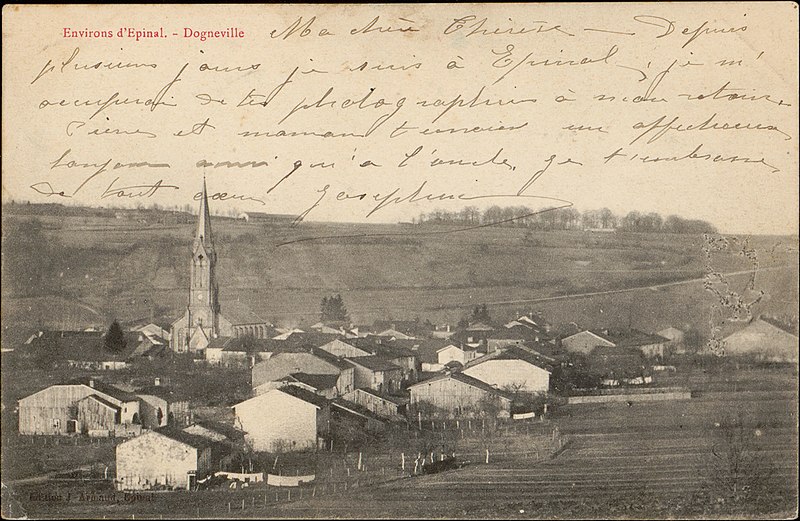 Environs d'Epinal. - Dogneville
Ma chère Thérèse — Depuis
plusieurs jours je suis à Epinal, je m'
occuperai de tes photographies à mon retour.
et maman t'envoient un affectueux
qu'à l'oncle. Je t'embrasse
de tout cœur Joséphine
Edition J. Arnaud, Epinal